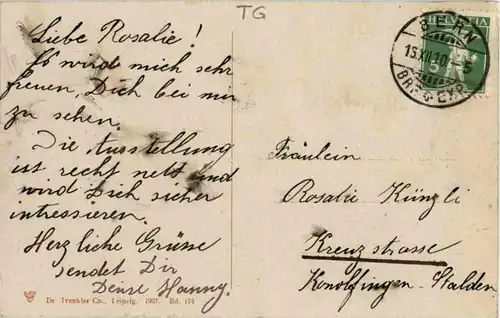 TG
Liebe Rosalie!
Es wird mich sehr
freuen, Dich bei mir
zu sehen.
Die Ausstellung
ist recht nett und
wird Dich sicher
intressieren.
Herzliche Grüsse
sendet Dir
Deine Hanny.
Dr. Trenkler Co., Leipzig. 1907. Bd. 174
HELVETIA
5
BERN
15.XII.10.-5
BRF.EXP.
Fräulein
Rosalie Künzli
Kreuzstrasse
Konolfingen-Stalden